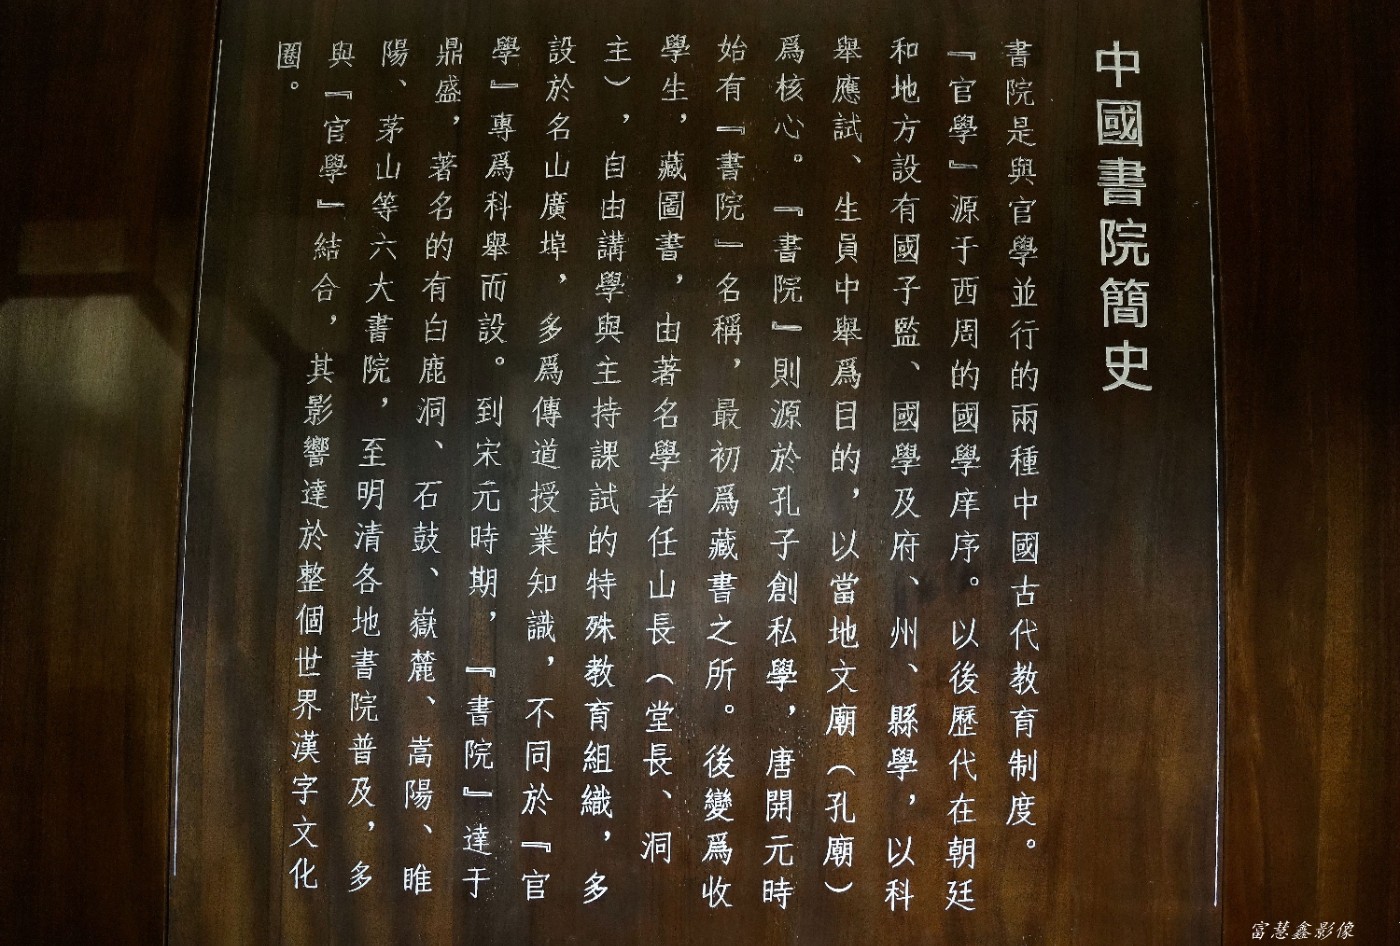 中國書院簡史
書院是與官學並行的兩種中國古代教育制度。
『官學』源于西周的國學庠序。以後歷代在朝廷
和地方設有國子監、國學及府、州、縣學，以科
舉應試、生員中舉爲目的，以當地文廟（孔廟）
爲核心。『書院』則源於孔子創私學，唐開元時
始有『書院』名稱，最初爲藏書之所。後變爲收
學生，藏圖書，由著名學者任山長（堂長、洞
主），自由講學與主持課試的特殊教育組織，多
設於名山廣埠，多爲傳道授業知識，不同於『官
學』專爲科舉而設。到宋元時期，『書院』達于
鼎盛，著名的有白鹿洞、石鼓、嶽麓、嵩陽、睢
陽、茅山等六大書院，至明清各地書院普及，多
與『官學』結合，其影響達於整個世界漢字文化
圈。
富慧鑫影像